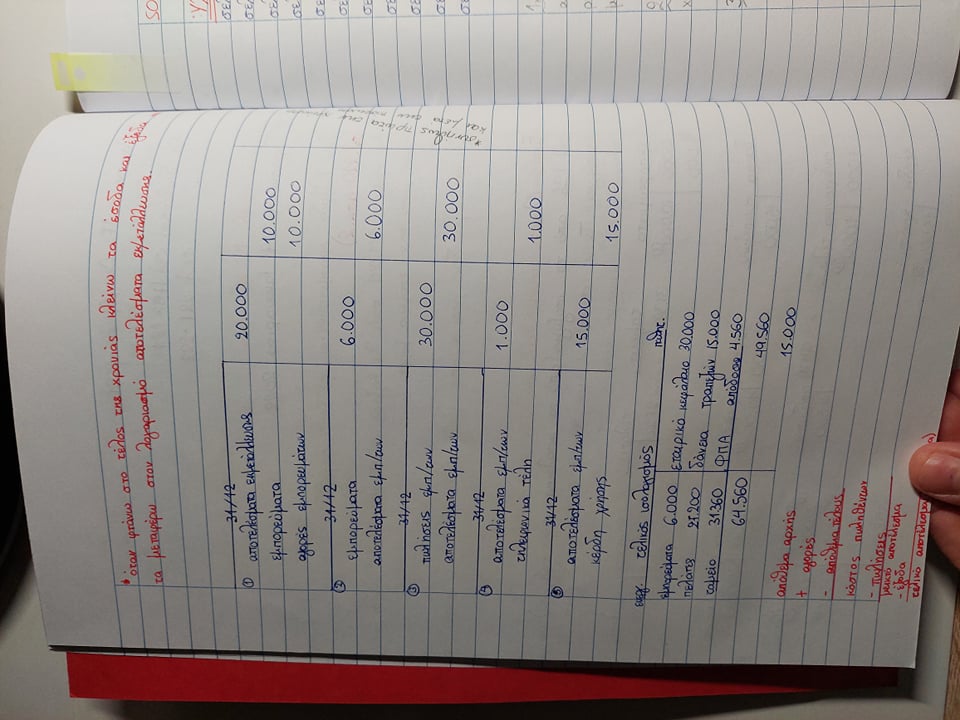 * όταν φτάνω στο τέλος της χρονιάς κλείνω τα έσοδα και έξοδα
τα μεταφέρω στον λογαριασμό αποτελέσματα εκμετάλλευσης.
31/12
① αποτελέσματα εκμετάλλευσης 20.000
εμπορεύματα 10.000
αγορές εμπορευμάτων 10.000
31/12
② εμπορεύματα 6.000
αποτελέσματα εμπ/των 6.000
31/12
③ πωλήσεις εμπ/των 30.000
αποτελέσματα εμπ/των 30.000
31/12
④ αποτελέσματα εμπ/των 1.000
τηλεφωνικά τέλη 1.000
31/12
⑤ αποτελέσματα εμπ/των 15.000
κέρδη χρήσης 15.000
* συνήθως πρώτα
και μετά
ενεργ. τελικός ισολογισμός παθητ.
εμπορεύματα 6.000 εταιρικό κεφάλαιο 30.000
πελάτες 27.200 δάνεια τραπεζών 15.000
ταμείο 31.360 ΦΠΑ απόδοση 4.560
64.560 49.560
15.000
απόθεμα αρχής
+ αγορές
- απόθεμα τέλους
κόστος πωληθέντων
- πωλήσεις
μεικτό αποτέλεσμα
- έξοδα
τελικό αποτέλεσμα